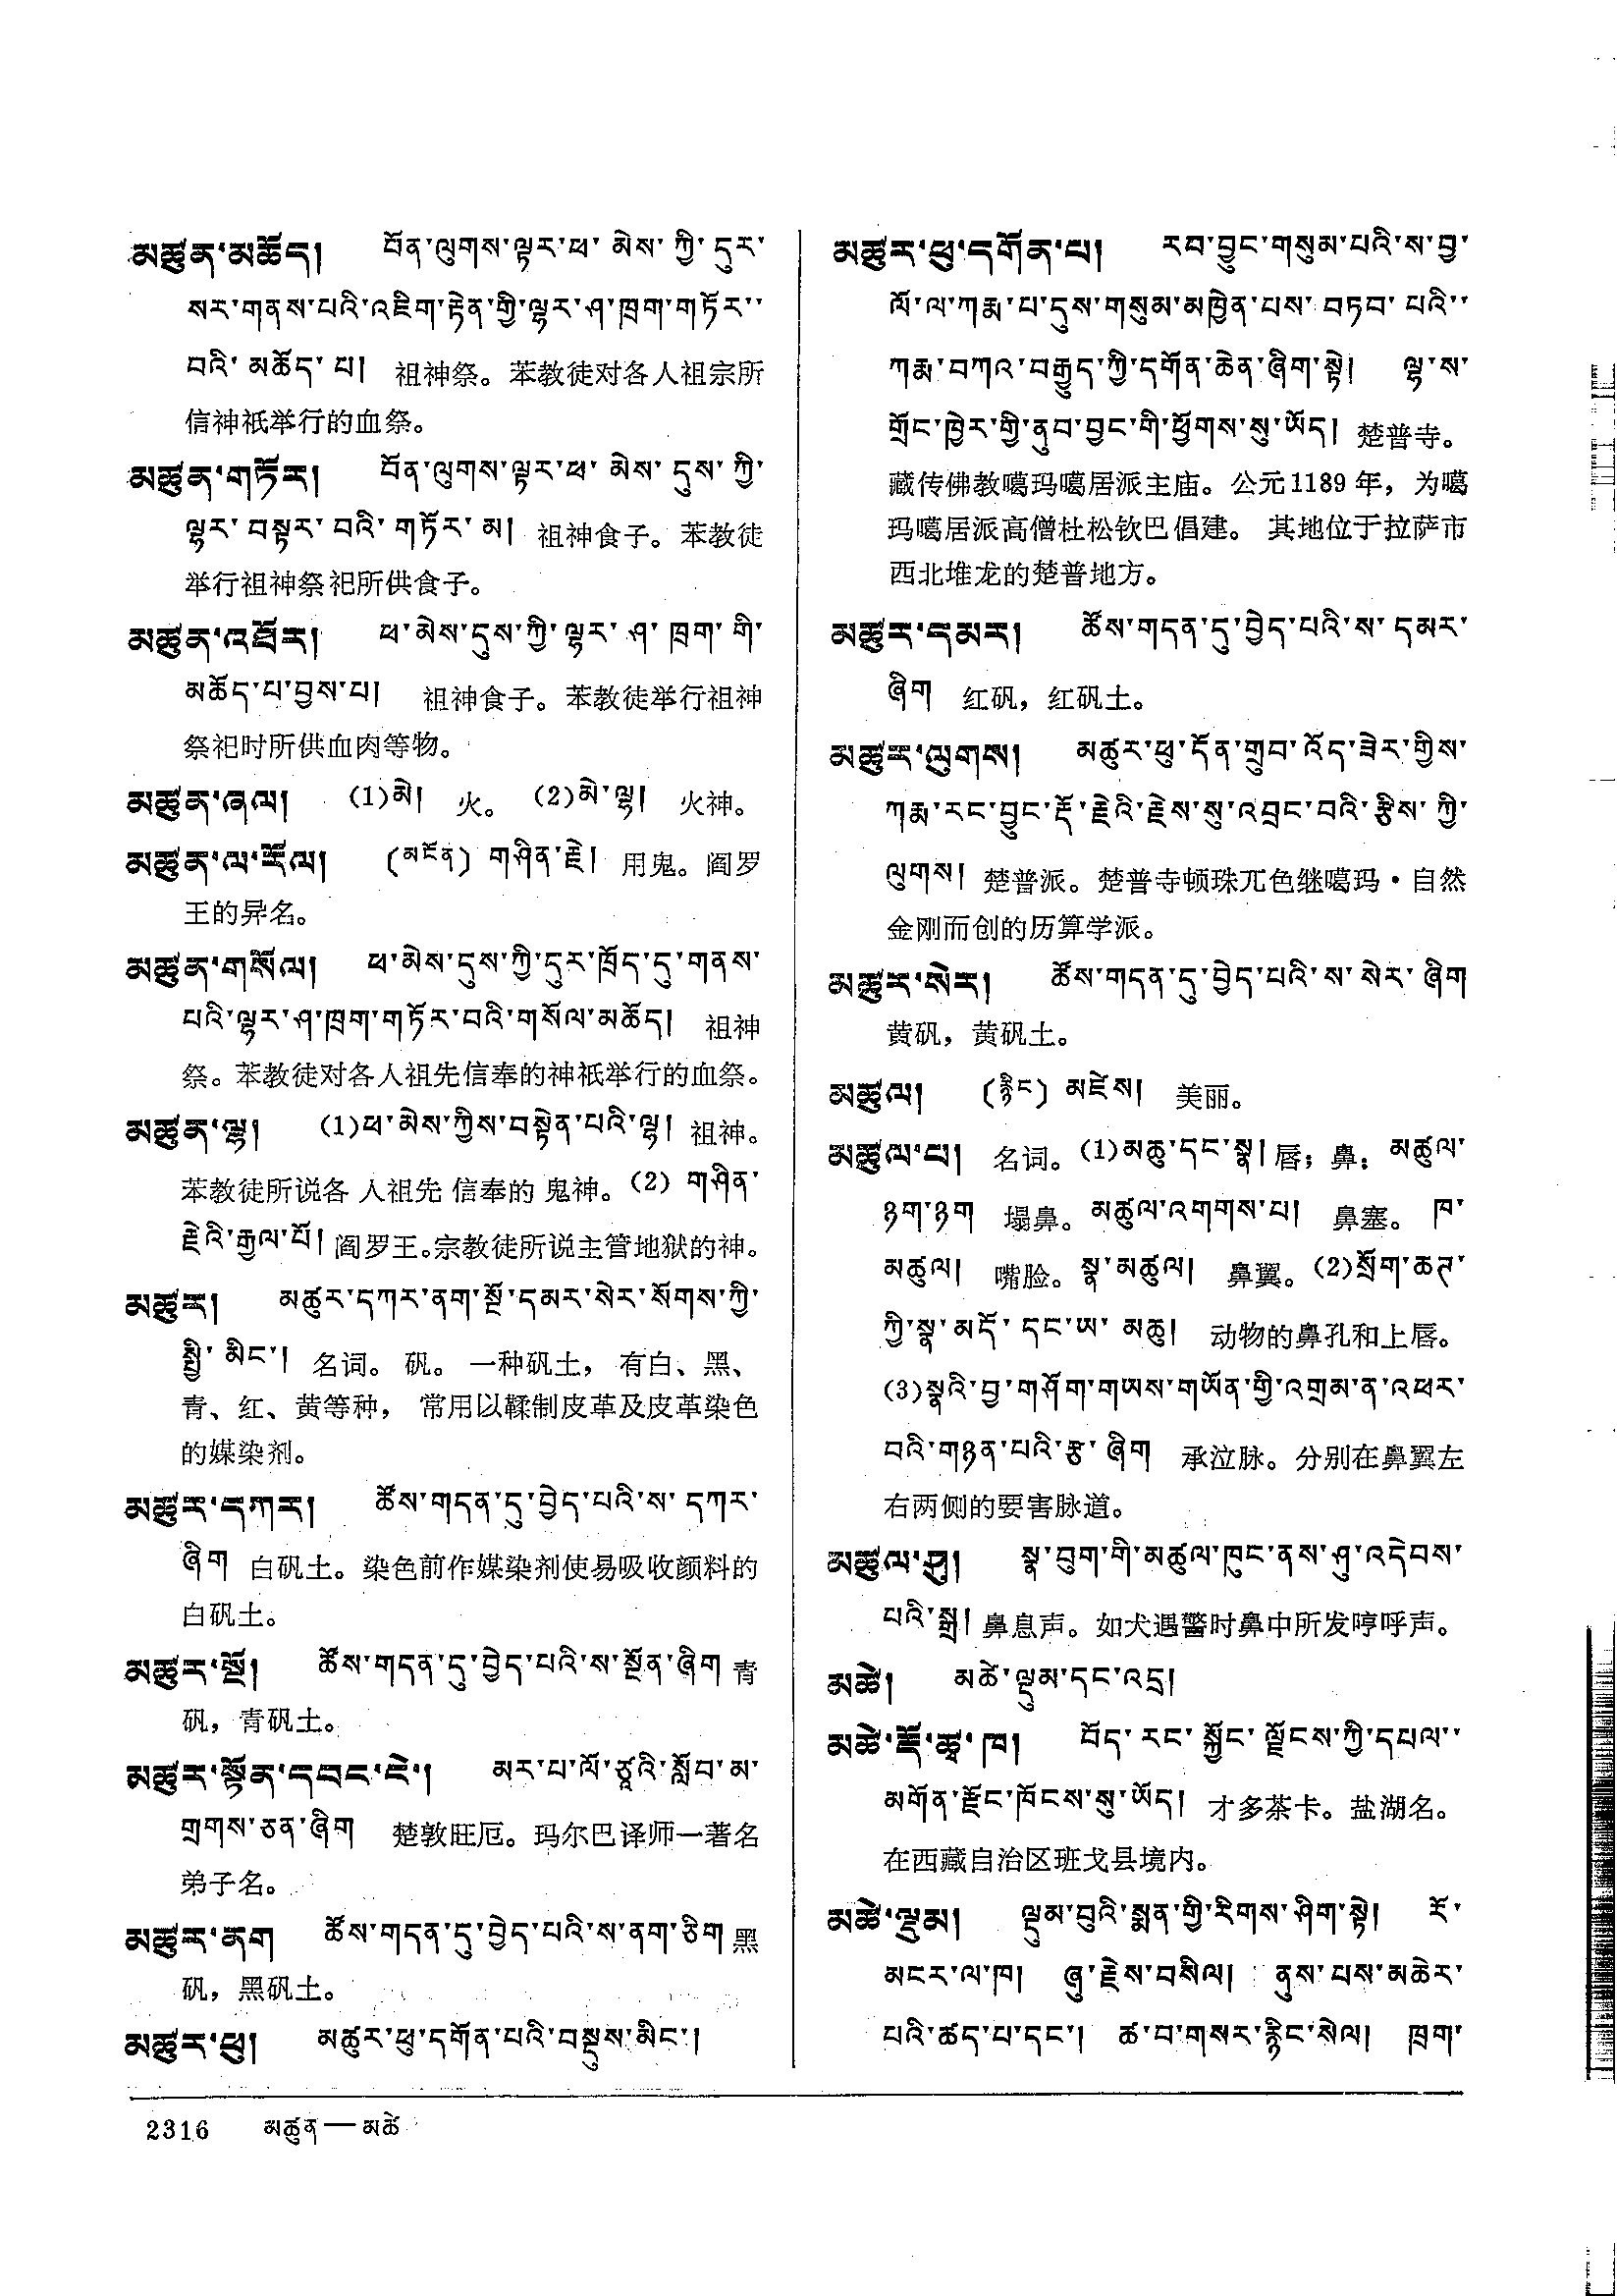 མཚུན་མཆོད། བོན་ལུགས་ལྟར་ཕ་མེས་ཀྱི་དུར་
སར་གནས་པའི་འཇིག་རྟེན་གྱི་ལྷར་ཤ་ཁྲག་གཏོར་་
བའི་མཆོད་པ། 祖神祭。苯教徒对各人祖宗所
信神祇举行的血祭。
མཚུན་གཏོར། བོན་ལུགས་ལྟར་ཕ་མེས་དུས་ཀྱི་
ལྷར་བསྟར་བའི་གཏོར་མ། 祖神食子。苯教徒
举行祖神祭祀所供食子。
མཚུན་འཐོར། ཕ་མེས་དུས་ཀྱི་ལྷར་ཤ་ཁྲག་གི་
མཆོད་པ་བྱས་པ། 祖神食子。苯教徒举行祖神
祭祀时所供血肉等物。
མཚུན་ཞལ། (1)མེ། 火。 (2)མེ་ལྷ། 火神。
མཚུན་ལ་རོལ། (མངོན) གཤིན་རྗེ། 用鬼。阎罗
王的异名。
མཚུན་གསོལ། ཕ་མེས་དུས་ཀྱི་དུར་ཁྲོད་དུ་གནས་
པའི་ལྷར་ཤ་ཁྲག་གཏོར་བའི་གསོལ་མཆོད། 祖神
祭。苯教徒对各人祖先信奉的神祇举行的血祭。
མཚུན་ལྷ། (1)ཕ་མེས་ཀྱིས་བསྟེན་པའི་ལྷ། 祖神。
苯教徒所说各人祖先信奉的鬼神。(2) གཤིན་
རྗེའི་རྒྱལ་པོ། 阎罗王。宗教徒所说主管地狱的神。
མཚུར། མཚུར་དཀར་ནག་སྔོ་དམར་སེར་སོགས་ཀྱི་
སྤྱི་མིང་། 名词。矾。一种矾土，有白、黑、
青、红、黄等种，常用以鞣制皮革及皮革染色
的媒染剂。
མཚུར་དཀར། ཚོས་གདན་དུ་བྱེད་པའི་ས་དཀར་
ཞིག 白矾土。染色前作媒染剂使易吸收颜料的
白矾土。
མཚུར་སྔོ། ཚོས་གདན་དུ་བྱེད་པའི་ས་སྔོན་ཞིག 青
矾，青矾土。
མཚུར་སྟོན་དབང་ངེ་། མར་པ་ལོ་ཙཱའི་སློབ་མ་
གྲགས་ཅན་ཞིག 楚敦旺厄。玛尔巴译师一著名
弟子名。
མཚུར་ནག ཚོས་གདན་དུ་བྱེད་པའི་ས་ནག་ཅིག 黑
矾，黑矾土。
མཚུར་ཕུ། མཚུར་ཕུ་དགོན་པའི་བསྡུས་མིང་།
མཚུར་ཕུ་དགོན་པ། རབ་བྱུང་གསུམ་པའི་ས་བྱ་
ལོ་ལ་ཀརྨ་པ་དུས་གསུམ་མཁྱེན་པས་བཏབ་པའི་་
ཀརྨ་བཀའ་བརྒྱུད་ཀྱི་དགོན་ཆེན་ཞིག་སྟེ། ལྷ་ས་
གྲོང་ཁྱེར་གྱི་ནུབ་བྱང་གི་ཕྱོགས་སུ་ཡོད། 楚普寺。
藏传佛教噶玛噶居派主庙。公元1189年，为噶
玛噶居派高僧杜松钦巴倡建。其地位于拉萨市
西北堆龙的楚普地方。
མཚུར་དམར། ཚོས་གདན་དུ་བྱེད་པའི་ས་དམར་
ཞིག 红矾，红矾土。
མཚུར་ལུགས། མཚུར་ཕུ་དོན་གྲུབ་འོད་ཟེར་གྱིས་
ཀརྨ་རང་བྱུང་རྡོ་རྗེའི་རྗེས་སུ་འབྲང་བའི་རྩིས་ཀྱི་
ལུགས། 楚普派。楚普寺顿珠兀色继噶玛·自然
金刚而创的历算学派。
མཚུར་སེར། ཚོས་གདན་དུ་བྱེད་པའི་ས་སེར་ཞིག
黄矾，黄矾土。
མཚུལ། (རྙིང) མཛེས། 美丽。
མཚུལ་པ། 名词。(1)མཆུ་དང་སྣ། 唇；鼻：མཚུལ་
ཉག་ཉག 塌鼻。མཚུལ་འགགས་པ། 鼻塞。 ཁ་
མཚུལ། 嘴脸。སྣ་མཚུལ། 鼻翼。(2)སྲོག་ཆགས་
ཀྱི་སྣ་མདོ་དང་ཡ་མཆུ། 动物的鼻孔和上唇。
(3)སྣའི་བྱ་གཤོག་གཡས་གཡོན་གྱི་འགྲམ་ན་འཕར་
བའི་གཉན་པའི་རྩ་ཞིག 承泣脉。分别在鼻翼左
右两侧的要害脉道。
མཚུལ་ཤུ། སྣ་བུག་གི་མཚུལ་ཁུང་ནས་ཤུ་འདེབས་
པའི་སྒྲ། 鼻息声。如犬遇警时鼻中所发哼呼声。
མཚེ། མཚེ་ལྡུམ་དང་འདྲ།
མཚེ་རྡོ་ཚྭ་ཁ། བོད་རང་སྐྱོང་ལྗོངས་ཀྱི་དཔལ་་
མགོན་རྫོང་ཁོངས་སུ་ཡོད། 才多茶卡。盐湖名。
在西藏自治区班戈县境内。
མཚེ་ལྡུམ། ལྡུམ་བུའི་སྨན་གྱི་རིགས་ཤིག་སྟེ། རོ་
མངར་ལ་ཁ། ཞུ་རྗེས་བསིལ། ནུས་པས་མཆེར་
པའི་ཚད་པ་དང་། ཚ་བ་གསར་རྙིང་སེལ། ཁྲག་
2316 མཚུན—མཚེ